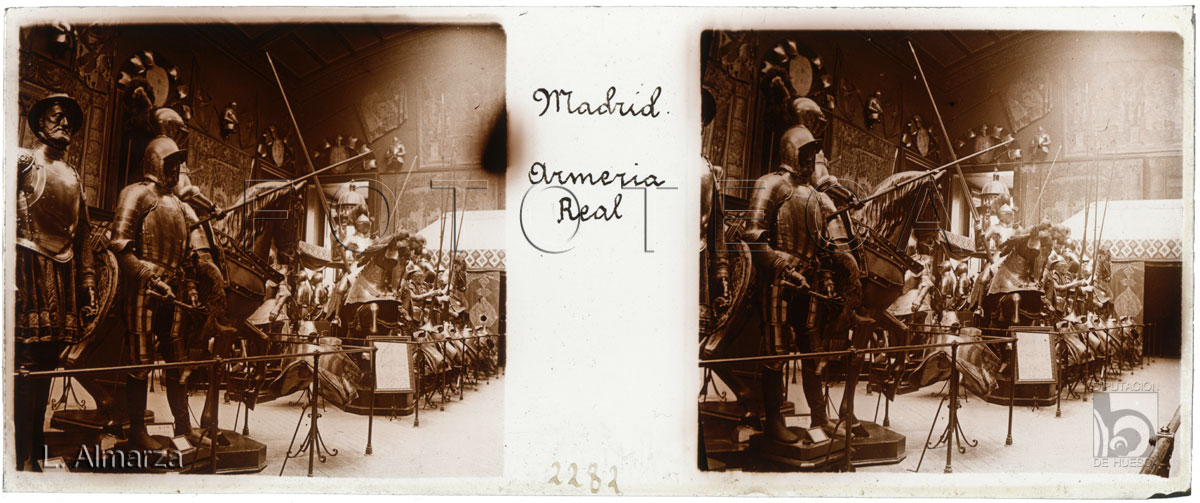 Madrid.
Armeria
Real
FOTOTECA
L. Almarza
DIPUTACIÓN
DE HUESCA
2282